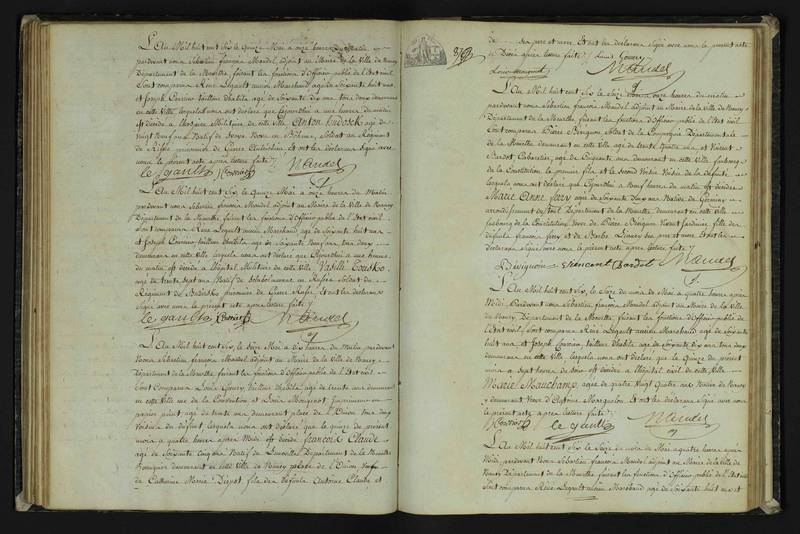 L'An Mil huit cent Six le Quinze Mai à onze heures du Matin
pardevant nous Sébastien françois Mandel adjoint au Maire de la Ville de Nancy
Département de la Meurthe, faisant les fonctions d'Officier public de l'Etat civil
Sont comparus René Legault ancien Marchand age de Soixante huit ans
et Joseph Corvier tailleur d'habits age de Soixante dix ans tous deux demeurans
en cette Ville, lesquels nous ont déclaré que cejourdhui a une heure du matin
est décédé a l'hospice Militaire de cette Ville Anton hadoski agé de
vingt Neuf ans Natif de en Bohême, Soldat au Régiment
de prisonnier de Guerre Autrichien Et ont les déclarans Signé avec
nous le présent acte après lecture faite
le gault J Corvier Mandel
L'An Mil huit cent Six, le Quinze Mai à onze heures du Matin
pardevant nous Sébastien françois Mandel adjoint au Maire de la Ville de Nancy
Département de la Meurthe faisant les fonctions d'Officier public de l'Etat civil
Sont comparus René Legault ancien Marchand, age de Soixante huit ans
et Joseph Corvier tailleur d'habits age de Soixante dix ans tous deux
demeurans en cette Ville lesquels nous ont déclaré que cejourdhui a une heure
du matin est décédé a l'hôpital Militaire de cette Ville Vasille
age de trente Sept ans Natif de en Russie Soldat au
Régiment de prisonnier de Guerre Russe. Et ont les déclarans
Signé avec nous le présent acte après lecture faite
le gault J Corvier Mandel
L'An Mil huit cent Six, le Seize Mai à dix heures du Matin pardevant
Nous Sébastien françois Mandel adjoint au Maire de la Ville de Nancy
Département de la Meurthe faisant les fonctions d'Officier public de l'Etat civil
Sont Comparus Louis Goury, tailleur d'habits, age de trente ans demeurant
en cette Ville rue de la Constitution et Louis Mengenot Imprimeur en
papier peint agé de trente ans demeurant place de l'Union tous deux
Voisins du défunt, lesquels nous ont déclaré que le quinze du présent
mois a quatre heures après Midi est décédé françois Claude
age de Soixante cinq ans Natif de Lunéville Département de la Meurthe
demeurant en cette Ville de Nancy place de l'Union Veuf
de Catherine Marie fils des défunts Antoine Claude et
de ses père et mère. Et ont les déclarans Signé avec nous le présent acte
après lecture faite Louis Goury
Louis Mengenot Mandel
L'An Mil huit cent Six le Seize Mai a onze heures du matin
pardevant nous Sébastien françois Mandel adjoint au Maire de la Ville de Nancy
Département de la Meurthe faisant les fonctions d'Officier public de l'Etat civil
Sont comparus Pierre Bérignon Soldat de la Compagnie Départementale
de la Meurthe demeurant en cette Ville age de trente quatre ans, et Vincent
Bardot Cabaretier, age de Cinquante ans demeurant en cette Ville faubourg
de la Constitution le premier fils et le Second Voisin de la défunte
lesquels nous ont déclaré que Cejourdhui a Neuf heures du matin est décédée
Marie Anne ferry age de Soixante dix ans Native de Germiny
arrondissement de Toul Département de la Meurthe demeurant en cette Ville
faubourg de la Constitution Veuve de Pierre Bérignon Vivant Jardinier fille des
défunts françois ferry et de Barbe ses père et mère. Et ont les
déclarans Signé avec nous le présent acte après lecture faite
P Bérignon Vincent Bardot Mandel
L'An Mil huit cent Six, le Seize du mois de Mai à quatre heures après
Midi, Pardevant nous Sébastien françois Mandel adjoint au Maire de la Ville
de Nancy Département de la Meurthe, faisant les fonctions d'Officier public de
l'Etat civil, Sont comparus René Legault ancien Marchand age de Soixante
huit ans et Joseph Corvier, tailleur d'habits age de Soixante dix ans tous deux
demeurans en cette Ville lesquels nous ont déclaré que le Quinze du présent
mois a Sept heures du Soir est décédée a l'hôpital civil de cette Ville
Marie Mauchamp agée de quatre Vingt Quatre ans Native de Nancy
y demeurant Veuve d'Antoine Et ont les déclarans Signé avec
nous le présent acte après lecture faite
J Corvier le gault Mandel
L'An Mil huit cent Six le Seize du mois de Mai a quatre heures après
Midi, pardevant Nous Sébastien françois Mandel adjoint au Maire de la Ville de
Nancy Département de la Meurthe, faisant les fonctions d'Officier public de l'Etat civil
Sont comparus René Legault ancien Marchand age de Soixante huit ans et